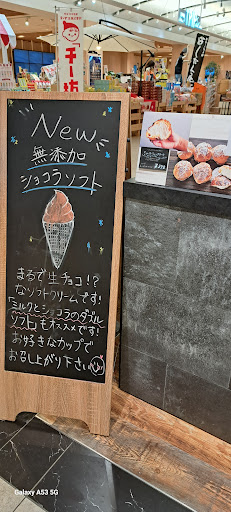 New
無添加
ショコラソフト
まるで生チョコ!?
なソフトクリームです!
「ミルクとショコラのダブル
ソフト」もオススメです!
お好きなカップで
お召し上がり下さい
チー坊
Galaxy A53 5G